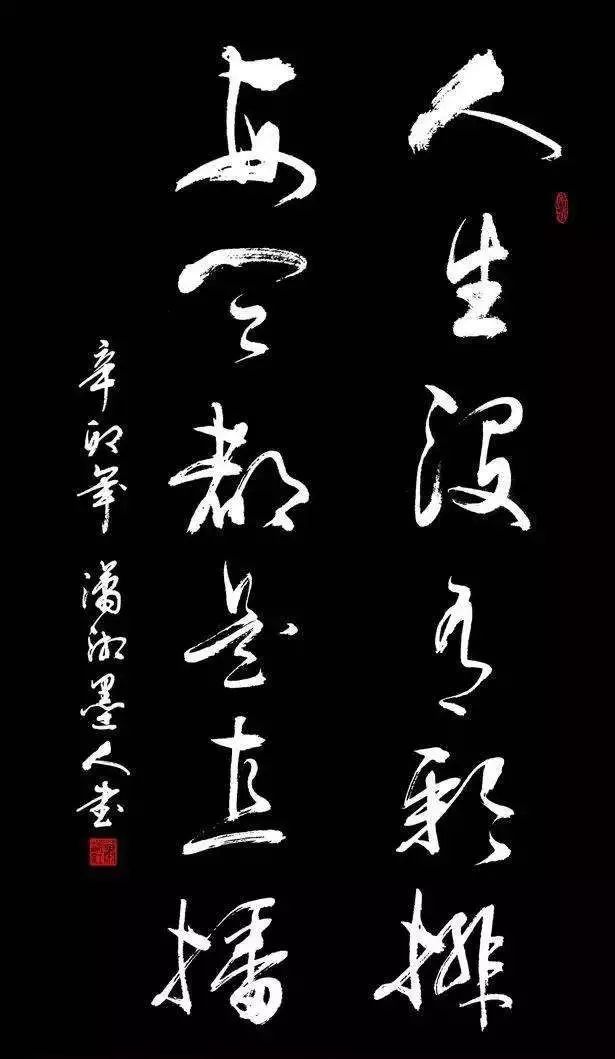 人生没有彩排
每天都是直播
辛卯年 潇湘墨人书